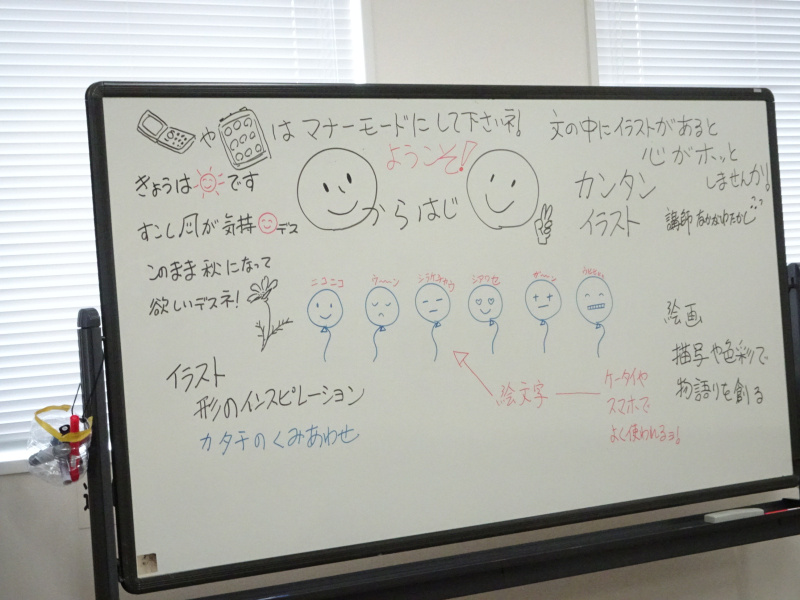 や はマナーモードにして下さいネ!
ようこそ!
きょうは です
すこし風が気持 デス
このまま秋になって
欲しいデスネ!
からはじ
文の中にイラストがあると
心がホッと
しませんか!
カンタン
イラスト
講師 なかがわたかし
ニコニコ
ウ〜〜ン
シアワセ
ガ〜〜ン
イラスト
形のインスピレーション
カタチのくみあわせ
絵文字
ケータイや
スマホで
よく使われるヨ!
絵画
描写や色彩で
物語りを創る